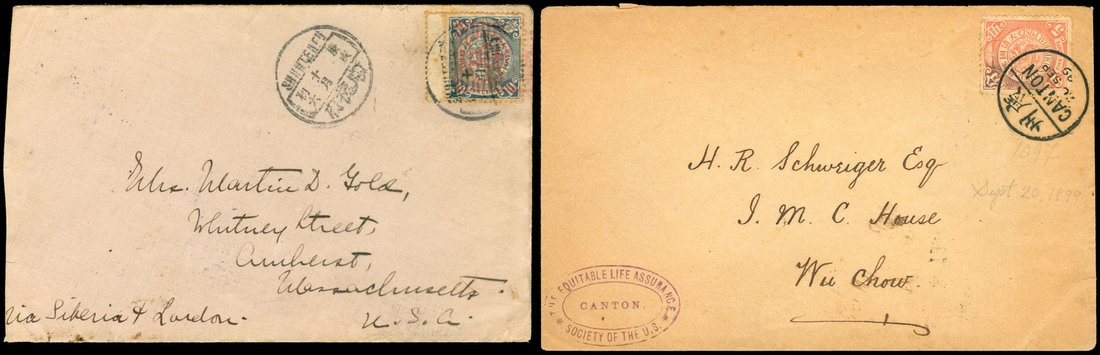 SHUNTEHFU
Mrs. Martin D. Gold,
Whitney Street,
Amherst,
Massachusetts.
U.S.A.
Via Siberia & London.
CANTON
SEP
99
H. R. Schweiger Esq
I. M. C. House
Wu Chow.
1897
Sept 20, 1899
THE EQUITABLE LIFE ASSURANCE
CANTON.
SOCIETY OF THE U.S.